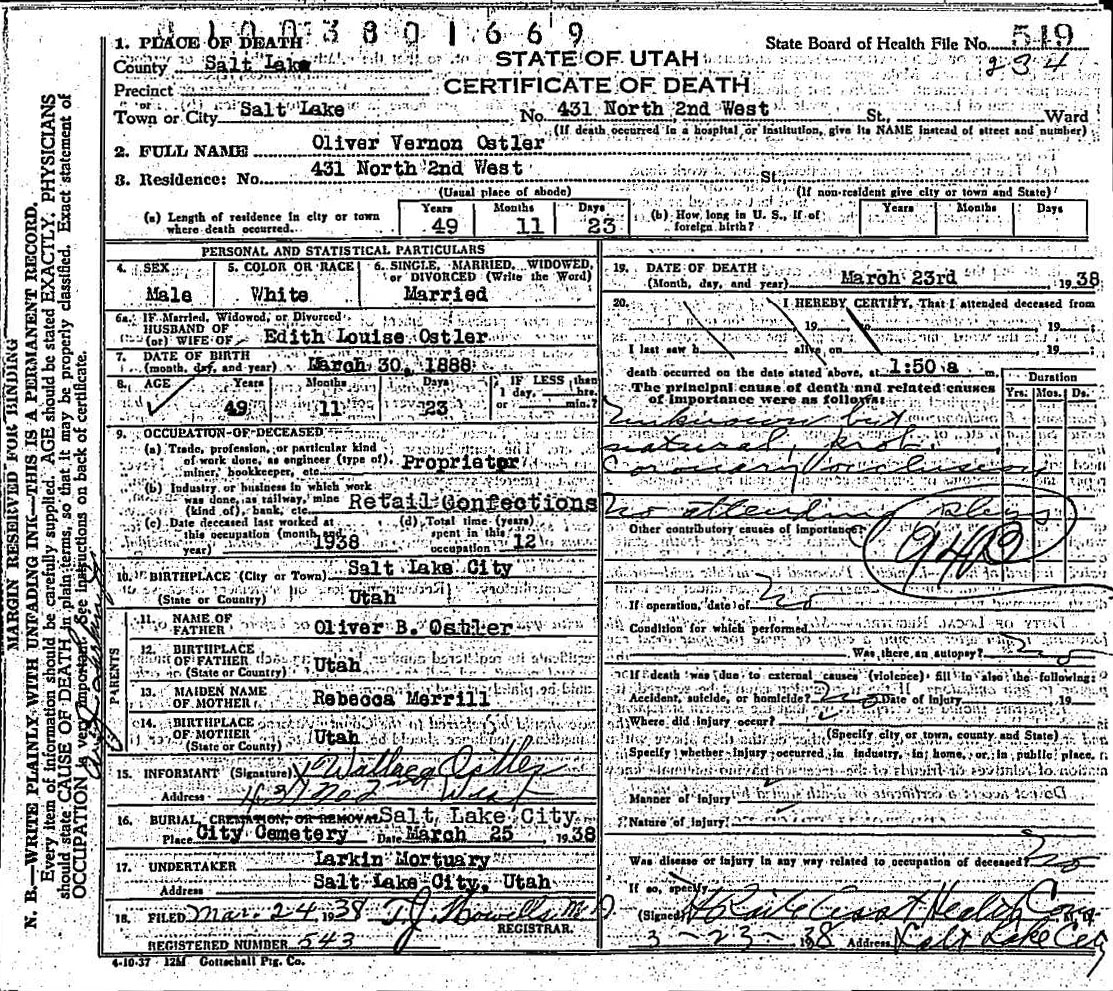 A 1 0 0 3 8 0 1 6 6 9
1. PLACE OF DEATH
State Board of Health File No. 519
234
County Salt Lake
STATE OF UTAH
Precinct
CERTIFICATE OF DEATH
or
Town or City Salt Lake No. 431 North 2nd West St., Ward
(If death occurred in a hospital or institution, give its NAME instead of street and number)
2. FULL NAME Oliver Vernon Ostler
3. Residence: No. 431 North 2nd West St.
(Usual place of abode) (If non-resident give city or town and State)
(a) Length of residence in city or town where death occurred. Years 49 Months 11 Days 23
(b) How long in U. S., if of foreign birth? Years Months Days
PERSONAL AND STATISTICAL PARTICULARS
4. SEX Male
5. COLOR OR RACE White
6. SINGLE, MARRIED, WIDOWED, or DIVORCED (Write the Word) Married
6a. IF Married, Widowed, or Divorced
HUSBAND OF
(or) WIFE OF Edith Louise Ostler
7. DATE OF BIRTH
(month, day, and year) March 30, 1888
8. AGE Years 49 Months 11 Days 23
IF LESS than 1 day, hrs. or min.?
9. OCCUPATION OF DECEASED
(a) Trade, profession, or particular kind
of work done, as engineer (type of),
miner, bookkeeper, etc. Proprietor
(b) Industry or business in which work
was done, as railway, mine
(kind of), bank, etc. Retail Confections
(c) Date deceased last worked at this occupation (month and year) 1938
(d) Total time (years) spent in this occupation 12
10. BIRTHPLACE (City or Town) Salt Lake City
(State or Country) Utah
PARENTS
11. NAME OF FATHER Oliver B. Ostler
12. BIRTHPLACE OF FATHER (State or Country) Utah
13. MAIDEN NAME OF MOTHER Rebecca Merrill
14. BIRTHPLACE OF MOTHER (State or Country) Utah
15. INFORMANT (Signature) Wallace Ostler
Address 431 No 2nd West
16. BURIAL, CREMATION, OR REMOVAL Salt Lake City
Place City Cemetery Date March 25 1938
17. UNDERTAKER Larkin Mortuary
Address Salt Lake City, Utah
18. FILED Mar. 24 1938 T.J. Howells M.D.
REGISTRAR.
REGISTERED NUMBER 543
4-10-37 12M Gottschall Ptg. Co.
19. DATE OF DEATH
(Month, day, and year) March 23rd 1938
20. I HEREBY CERTIFY, That I attended deceased from
19 to 19
I last saw h alive on 19
death occurred on the date stated above, at 1:50 a m.
The principal cause of death and related causes
of importance were as follows:
Duration
Yrs. Mos. Ds.
Unknown but
natural, prob.
Coronary occlusion
No attending
Other contributory causes of importance:
If operation, date of No
Condition for which performed
Was there an autopsy? No
If death was due to external causes (violence) fill in also the following:
Accident, suicide, or homicide? No Date of injury 19
Where did injury occur?
(Specify city, or town, county and State)
Specify whether injury occurred in industry, in home, or in public place.
Manner of injury
Nature of injury
Was disease or injury in any way related to occupation of deceased? No
If so, specify
(Signed)
3-23- 1938 Address Salt Lake City
MARGIN RESERVED FOR BINDING
N. B.—WRITE PLAINLY, WITH UNFADING INK—THIS IS A PERMANENT RECORD.
Every item of information should be carefully supplied. AGE should be stated EXACTLY. PHYSICIANS
should state CAUSE OF DEATH in plain terms, so that it may be properly classified. Exact statement of
OCCUPATION is very important. See instructions on back of certificate.